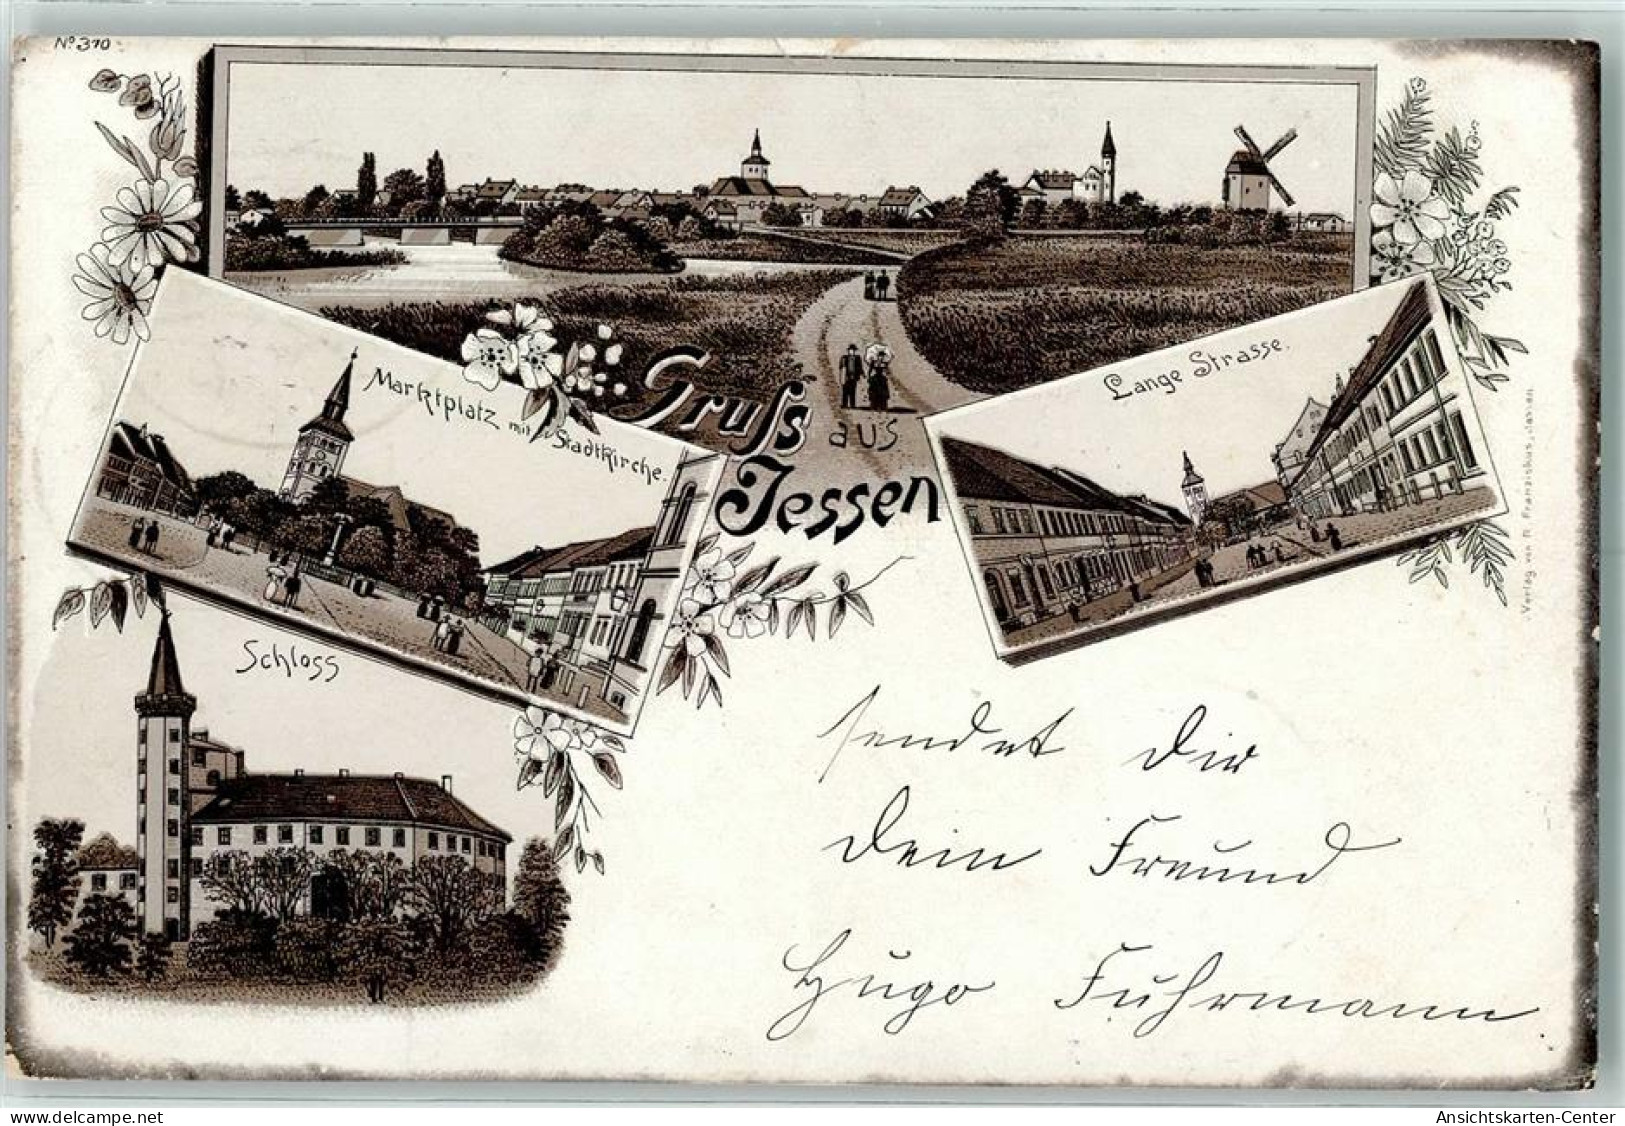 No 310
Marktplatz mit Stadtkirche.
Gruß aus
Jessen
Lange Strasse.
Schloss
Verlag von R. Franziskus, Jessen
sendet Dir
Dein Freund
Hugo Fuhrmann
www.delcampe.net
Ansichtskarten-Center